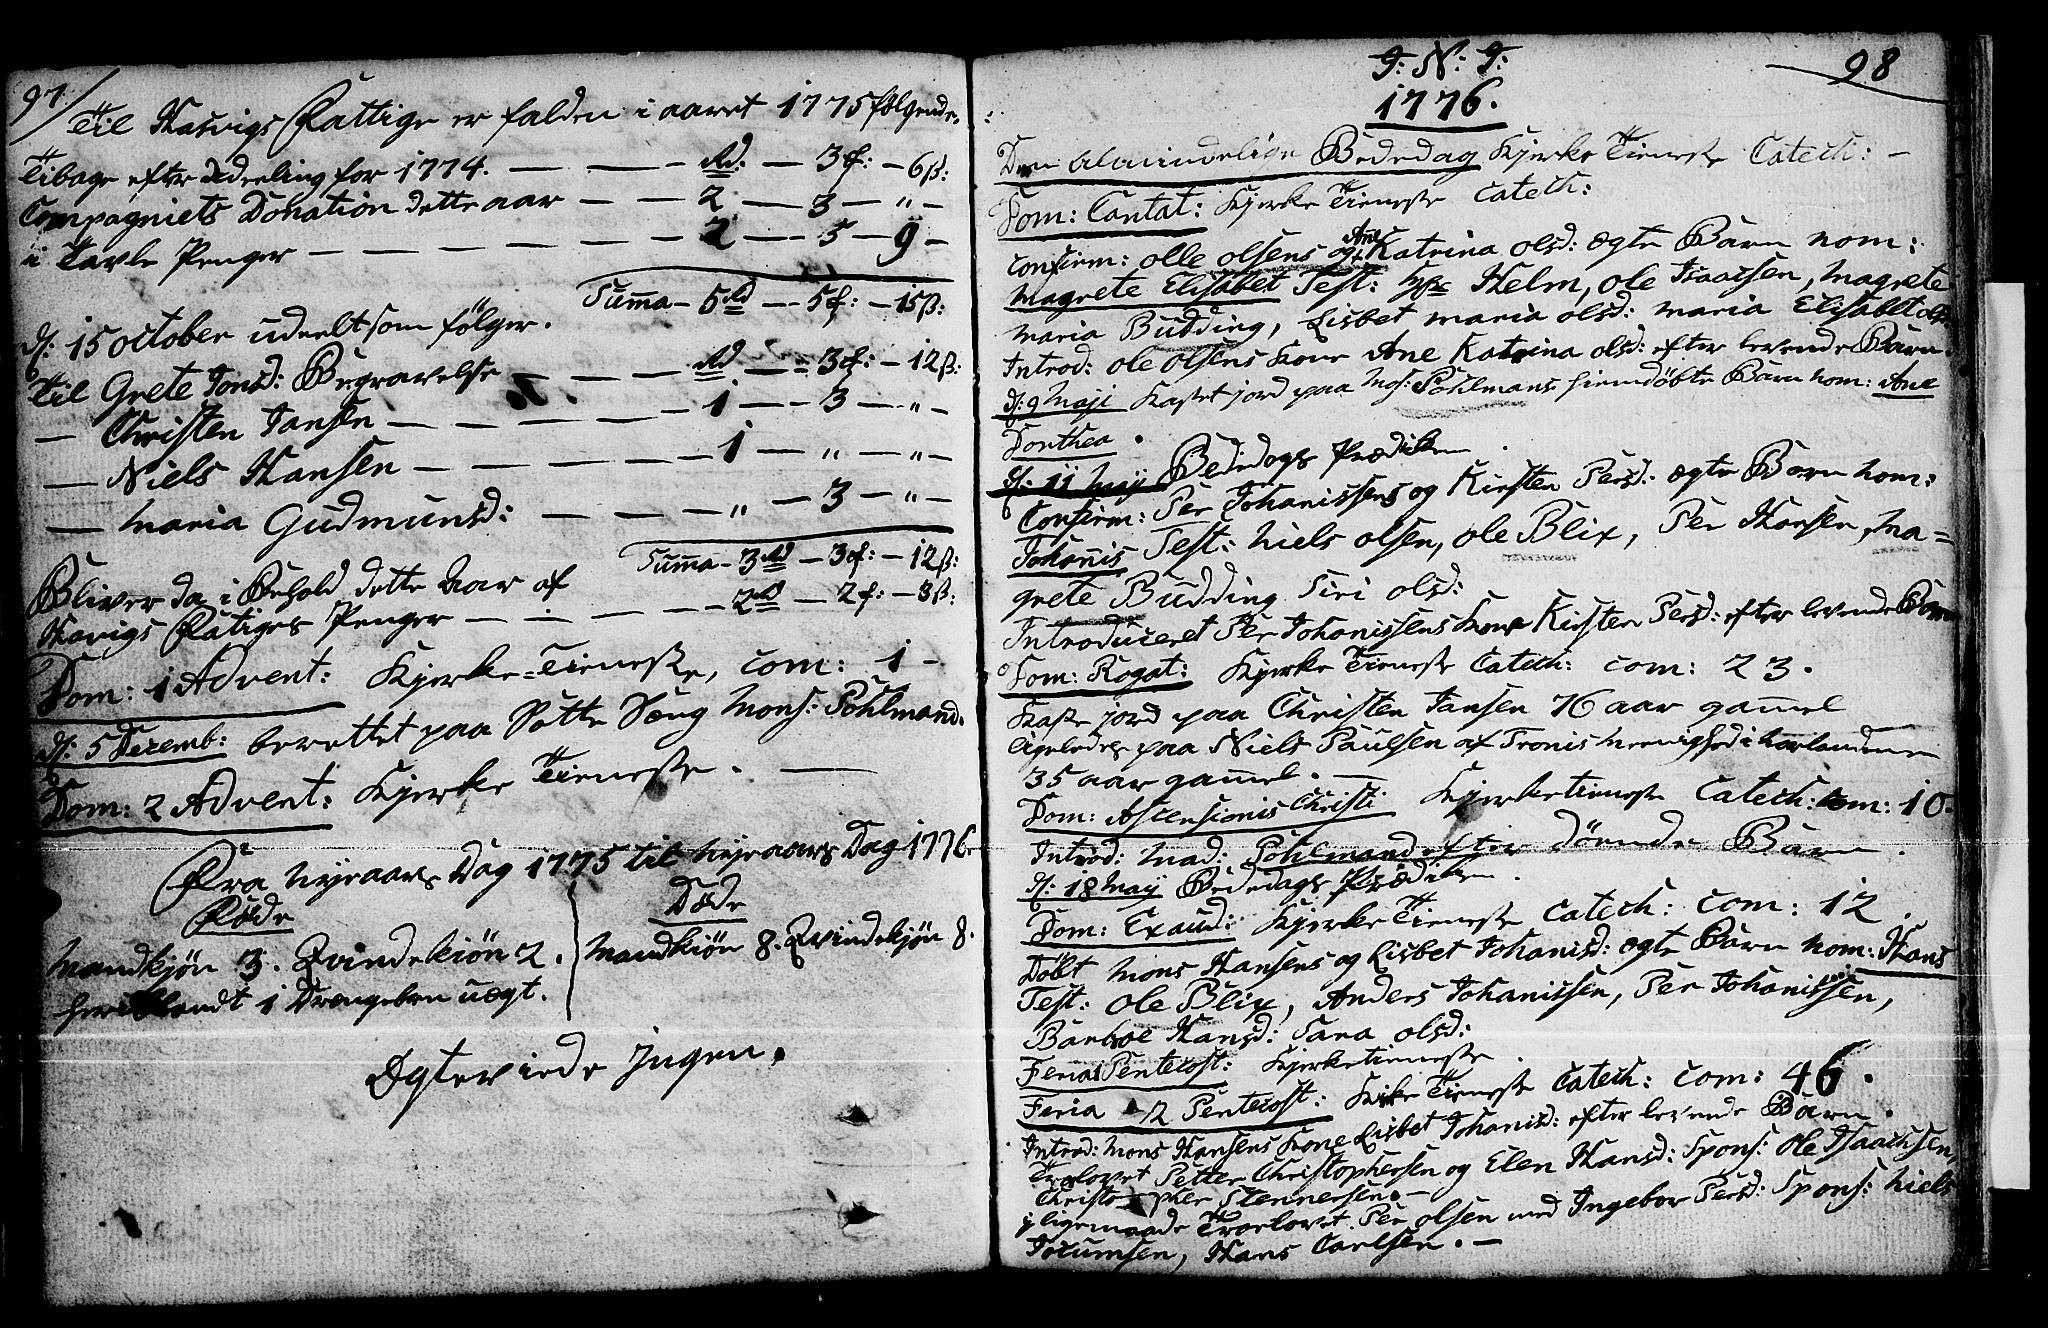 97/
Til Hasvigs Fattige er falden i aaret 1775 følgende.
Tilbage efter Udeeling for 1774. — — — Rd. — 3 f: — 6 ß:
Compagniets Donation dette aar — — 2 — 3 — „ —
i Tavle Penger — — — — — — 2 — 5 — 9 —
Summa — 5 Rd — 5 f: — 15 ß:
d: 15 october udeelt som følger.
Til Grete Jonsd: Begravelse — — — Rd — 3 f: — 12 ß:
— Christen Jansen — — — — — 1 — 3 — „ —
— Niels Hansen — — — — — 1 — „ — „ —
— Maria Gudmunsd: — — — — „ — 3 — „ —
Summa — 3 Rd — 3 f: — 12 ß:
Bliver da i Behold dette Aar af
Havigs Fatiges Penger — — — — 2 Rd — 2 f: — 3 ß:
Dom: 1 Advent: Kjerke-Tieneste, com: 1 —
d: 5 Decemb: berettet paa Sotte Sæng Mons: Pohlmand.
Dom: 2 Advent: Kjerke Tieneste. —
Fra Nyeaars Dag 1775 til Nyeaars Dag 1776
Føde Døde
Mandkjøn 3. Qvindekiøn 2. Mandkiøn 8. Qvindekjøn 8.
heriblandt 1 Drængebrn uægt.
Ægteviede Ingen.
98
J: N: J:
1776.
Den almindelige Bededag Kjerke Tieneste Catech: —
Dom: Cantat: Kjerke Tieneste Catech:
Confirm: olle olsens og Ane Katrina olsd: ægte Barn nom:
Magrete Elisabet Test: Helm, ole Isaacsen, Magrete
Maria Budding, Lisbet Maria olsd: Maria Elisabet
Introd: ole olsens Kone Ane Katrina olsd: efter levende Barn.
d: 9 Maji Kastet jord paa Mos: Pohlmans hiemdøbte Barn nom: Ane
Dorthea.
d: 11 Maij Bededags Prædiken.
Confirm: Per Johanissens og Kirsten Persd: ægte Barn nom:
Johanis Test: Niels olsen, ole Blix, Per Hansen, Ma=
grete Budding Siri olsd:
Introduceret Per Johanissens Kone Kirsten Persd: efter levende Barn
Dom: Rogat: Kjerke Tieneste Catech: com: 23.
Kaste jord paa Christen Jansen 76 aar gamel
ligeledes paa Niels Paulsen af Tronis Meenighed i
35 aar gamel. —
Dom: Ascensionis Christi Kjerketieneste Catech: com: 10.
Introd: Mad: Pohlmand efter Barn.
d: 18 Maij Bededags Prædiken.
Dom: Exaud: Kjerke Tieneste Catech: com: 12.
Døbt Mons Hansens og Lisbet Johanisd: ægte Barn nom: Hans
Test: ole Blix, Anders Johanissen, Per Johanissen,
Barbroe Hansd: Sara olsd:
Feria 1 Pentecost: Kjerketieneste.
Feria 2 Pentecost: Kirke Tieneste Catech: com: 46.
Introd: Mons Hansens Kone Lisbet Johanisd: efter levende Barn.
Trolovet Petter Christophersen og Elen Hansd: Spons: Ole Isaachsen,
Christopher Stennersen. —
ligemaade Troelovet Per olsen med Ingebor Persd: Spons: Niels
Jocumsen, Hans Carlsen. —